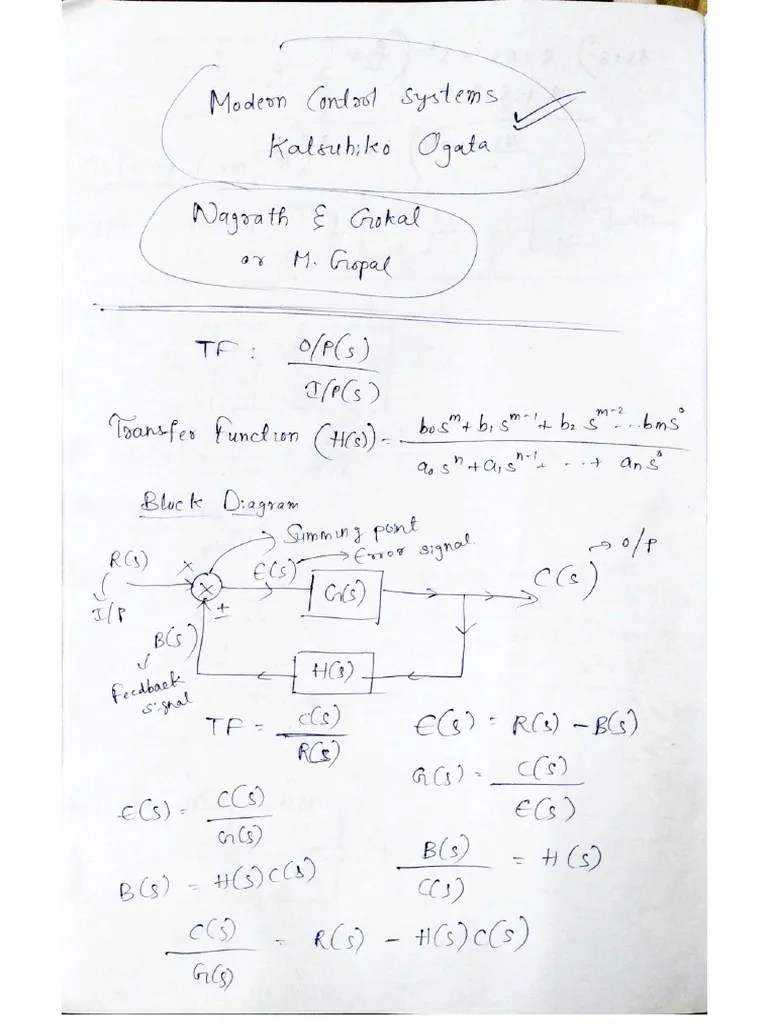 Modern Control Systems
Katsuhiko Ogata
Nagrath & Gokal
or M. Gopal
TF : O/P(s) / I/P(s)
Transfer Function (H(s)) = b₀sᵐ + b₁sᵐ⁻¹ + b₂sᵐ⁻² ... bₘs⁰ / a₀sⁿ + a₁sⁿ⁻¹ + ... + aₙs⁰
Block Diagram
Summing point
R(s) × E(s) → Error signal
→ O/P
C(s)
×
G(s)
I/P
±
B(s)
H(s)
Feedback
signal
TF = C(s) / R(s)
E(s) = R(s) - B(s)
G(s) = C(s) / E(s)
E(s) = C(s) / G(s)
B(s) / C(s) = H(s)
B(s) = H(s)C(s)
C(s) / G(s) = R(s) - H(s)C(s)